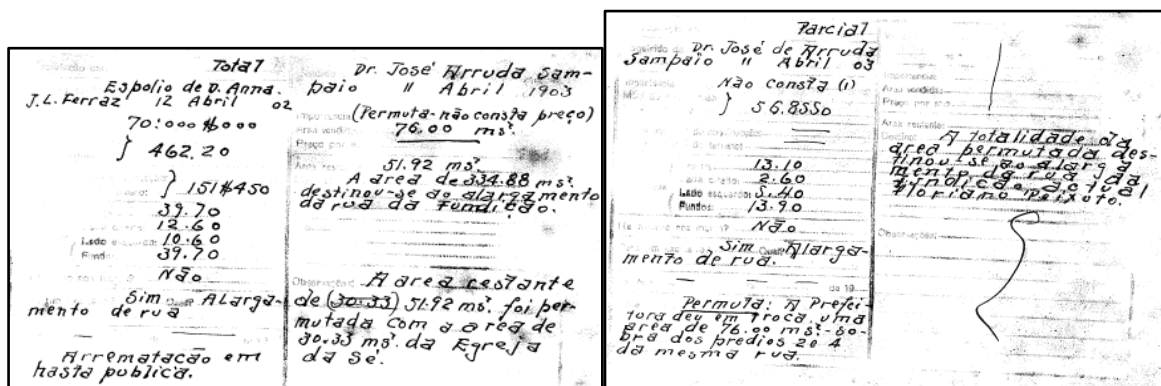 Total
Espolio de D. Anna.
J.L. Ferraz 12 Abril 02
70:000$000
} 462.20
} 151$450
39.70
12.60
Lado esquerdo: 10.60
Fundos: 39.70
Não
Sim ALarga-
mento de rua
Arrematacão em
hasta publica.
Dr. José Arruda Sam-
paio " Abril 1903
(Permuta-não consta preço)
76.00 ms².
51.92 ms².
A area de 334.88 ms².
destinou-se ao alargamento
da rua da Fundição.
Observações: A area cestante
de (30.33) 51.92 ms². foi per-
mutada com a area de
30.33 ms². da Egreja
da Sé.
Parcial
Dr. José de Arruda
Sampaio " Abril 03
Não Consta (1)
} 56.8550
13.10
2.60
Lado esquerdo: 5.40
Fundos: 13.90
Não
Sim Alarga-
mento de rua.
Permuta: A Prefei-
tura deu em troca uma
area de 76.00 ms². so-
bra dos predios 20 4
da mesma rua.
A totalidade da
area permutada des-
tinou se ao alarga
mento da rua da
Fundicão, actual
Floriano Peixoto.
Observações: